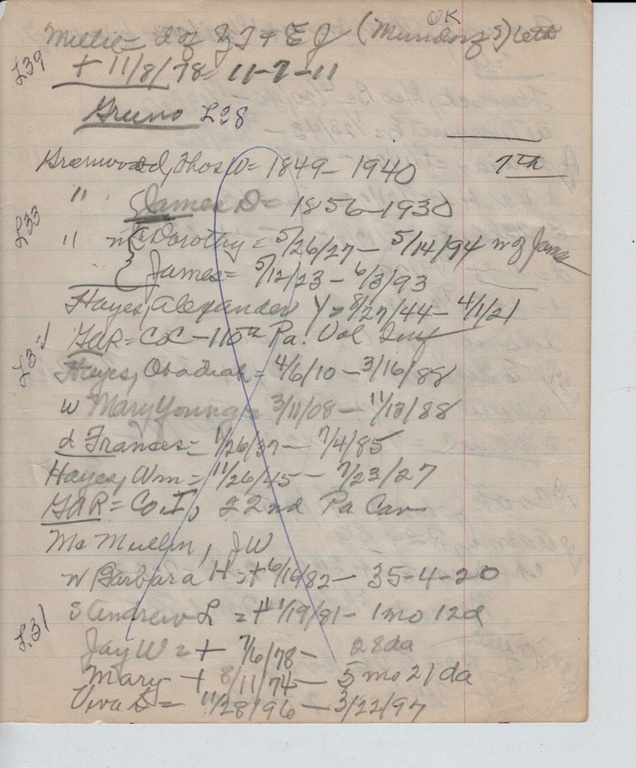 OK
Millie = d of Z T & E J (Mundorf S) Leth
L39 + 11/8/78 = 11-7-11
Greeno L38
Grenwood, Thos W = 1849 - 1940 7th
" James D = 1856 - 1930
L33 " w Dorothy = 5/26/27 - 5/14/94 w of James
James = 5/12/23 - 6/3/93
Hayes, Alexander Y = 8/27/44 - 4/1/21
GAR = Co C - 110th Pa. Vol Inf
L32 Hayes, Obadiah = 4/6/10 - 3/16/88
w Mary Young = 3/11/08 - 11/13/88
d Frances = 1/26/37 - 7/4/85
Hayes, Wm = 11/26/45 - 7/23/27
GAR = Co. I, 22nd Pa Cav
Mc Mullin, JW
w Barbara H = + 6/16/82 - 35-4-20
s Andrew L = + 1/19/81 - 1 mo 12d
L31 Jay W = + 7/6/78 - 28da
Mary + 8/11/74 - 5 mo 21 da
Viva D = 11/28/96 - 3/22/97